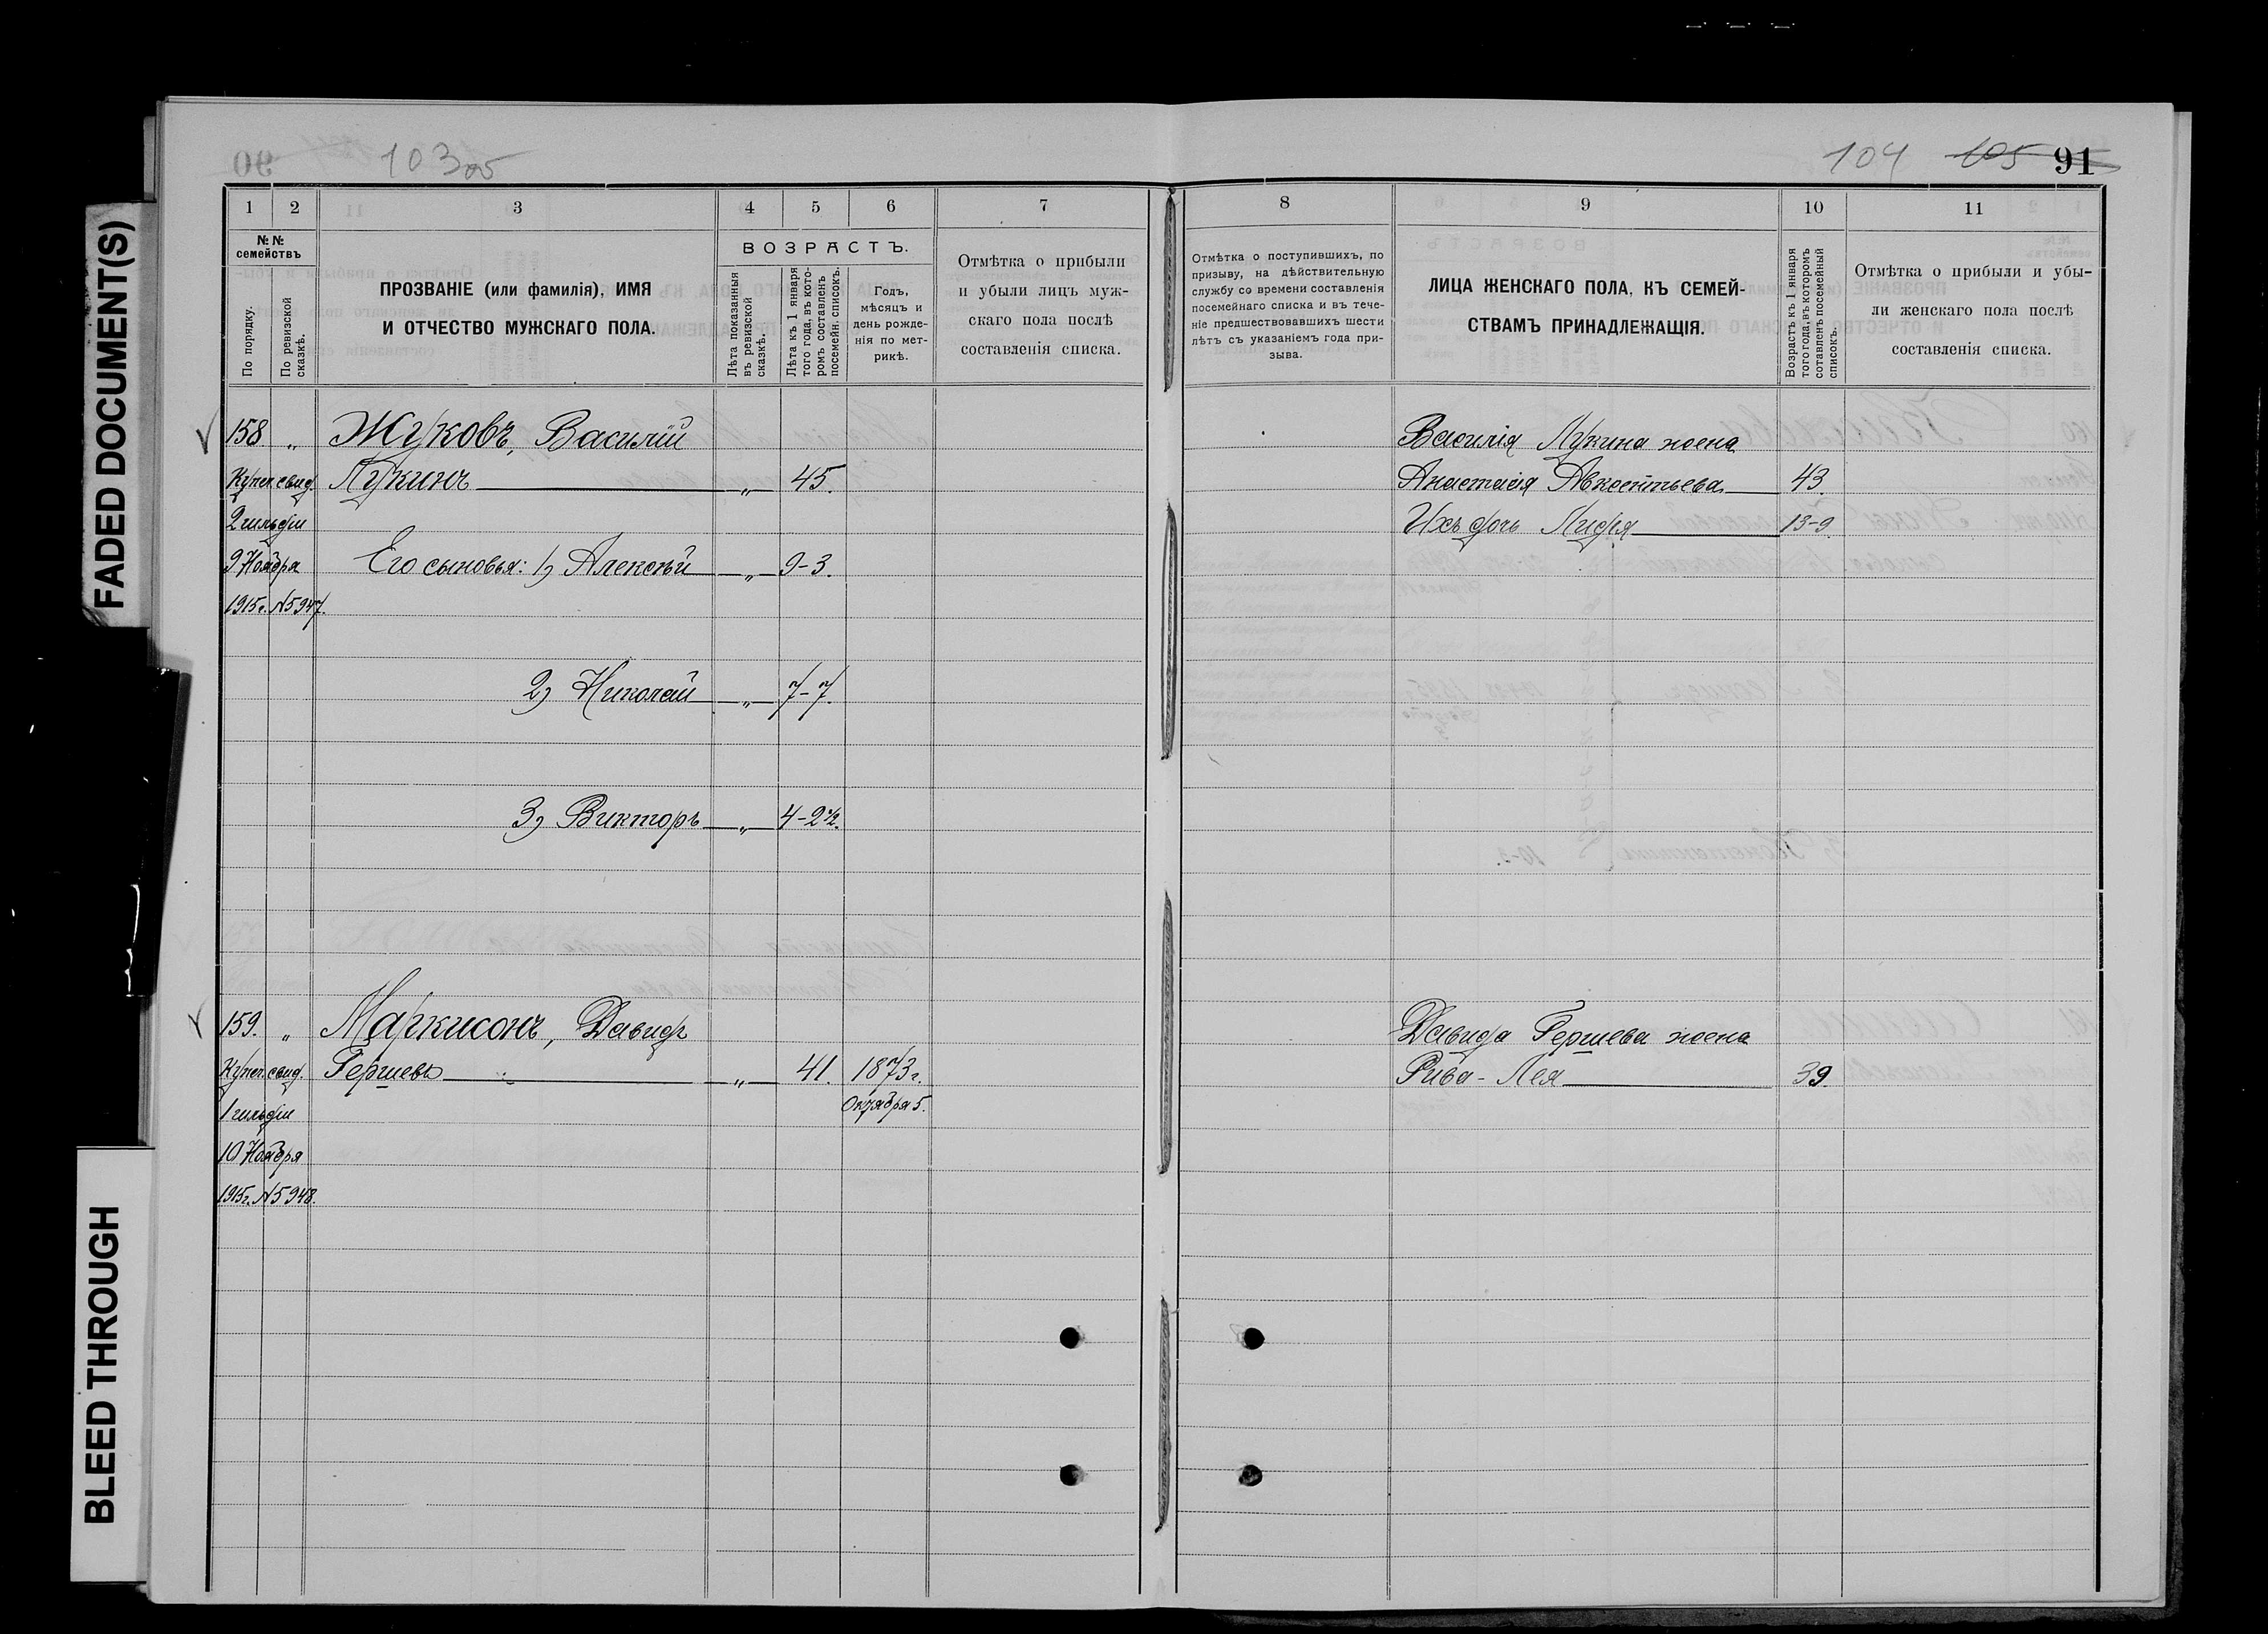 FADED DOCUMENT(S)
BLEED THROUGH
103
104 105 91
1 2 3 4 5 6 7
№№ семействъ
По порядку.
По ревизской сказкѣ.
ПРОЗВАНІЕ (или фамилія), ИМЯ
И ОТЧЕСТВО МУЖСКАГО ПОЛА.
ВОЗРАСТЪ.
Лѣта показанныя
въ ревизской
сказкѣ.
Лѣта къ 1 января
того года, въ кото-
ромъ составленъ
посемейн. списокъ.
Годъ,
мѣсяцъ и
день рожде-
нія по мет-
рикѣ.
Отмѣтка о прибыли
и убыли лицъ муж-
скаго пола послѣ
составленія списка.
158 „ Жуковъ, Василій
Купеч. свид. Лукинъ „ 45.
2 гильдіи
9 Ноября Его сыновья: 1) Алексѣй „ 9-3.
1915г. №5947.
2) Николай „ 7-7.
3) Викторъ „ 4-2½.
159. „ Маркисонъ, Давидъ
Купеч. свид. Гершевъ „ 41. 1873г.
1 гильдіи Октября 5.
10 Ноября
1915г. №5948.
8 9 10 11
Отмѣтка о поступившихъ, по
призыву, на дѣйствительную
службу со времени составленія
посемейнаго списка и въ тече-
ніе предшествовавшихъ шести
лѣтъ съ указаніемъ года при-
зыва.
ЛИЦА ЖЕНСКАГО ПОЛА, КЪ СЕМЕЙ-
СТВАМЪ ПРИНАДЛЕЖАЩІЯ.
Возрастъ къ 1 января
того года, въ которомъ
сотавленъ посемейный
списокъ.
Отмѣтка о прибыли и убы-
ли женскаго пола послѣ
составленія списка.
Василія Лукина жена
Анастасія Авксентьева 43.
Ихъ дочь Лидія 13-9.
Давида Гершева жена
Рива-Лея 39.